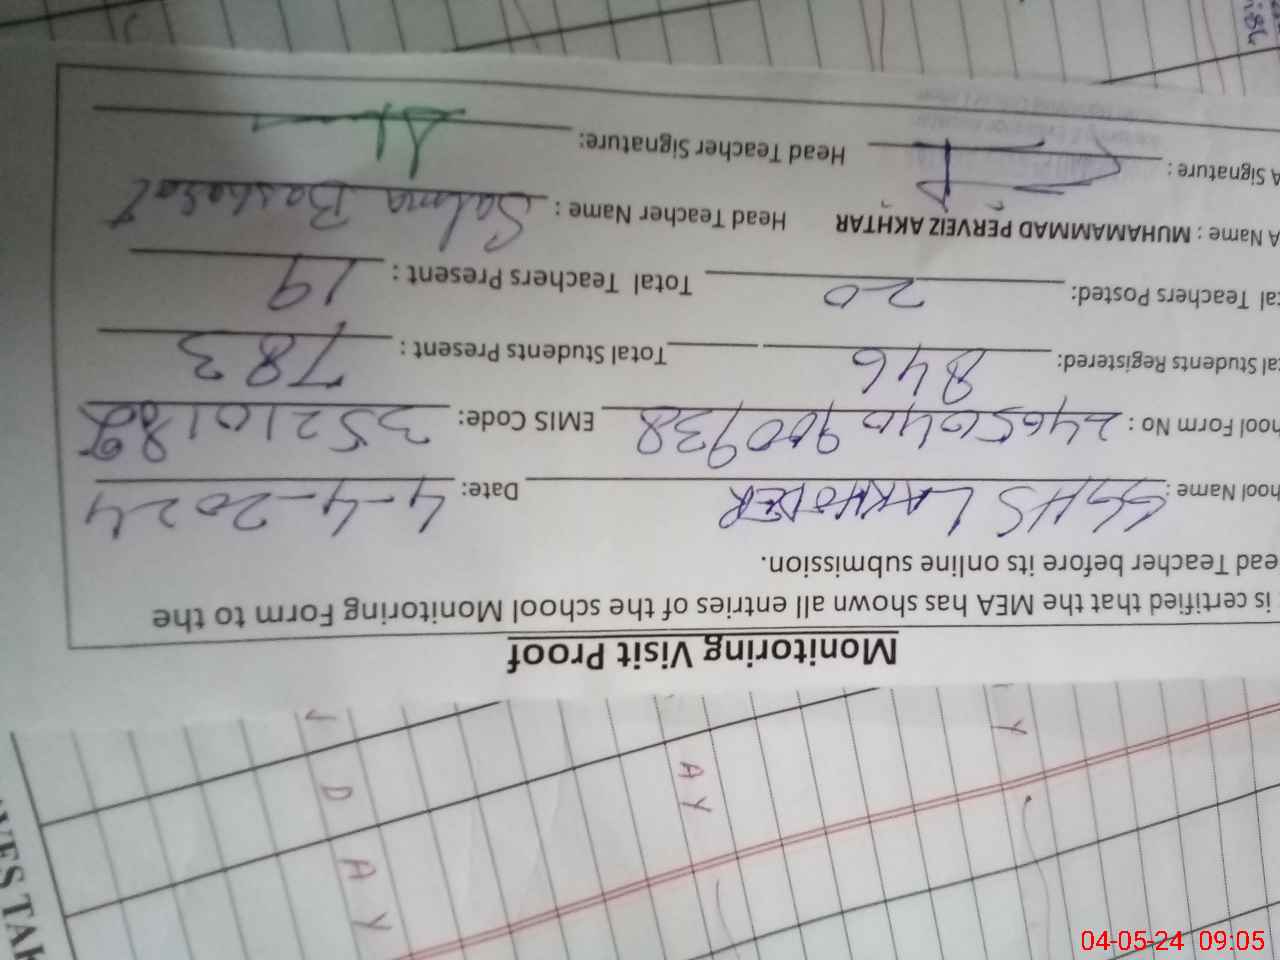 Monitoring Visit Proof
is certified that the MEA has shown all entries of the school Monitoring Form to the
ead Teacher before its online submission.
hool Name : GGHS LAKHODER Date: 4-4-2024
hool Form No : 2405040900938 EMIS Code:
al Students Registered: 846 Total Students Present : 783
al Teachers Posted: 20 Total Teachers Present : 19
A Name : MUHAMAMMAD PERVEIZ AKHTAR Head Teacher Name : Salma Basharat
A Signature : Head Teacher Signature:
Y
A Y
D
A
Y
VES TAK
04-05-24 09:05